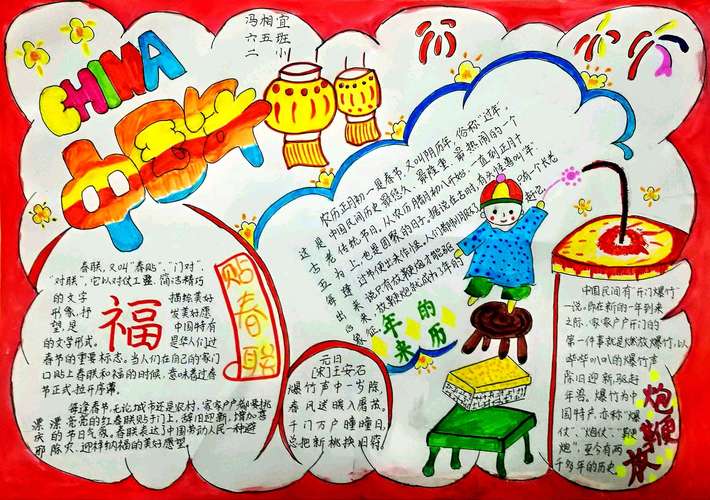 CHINA
中国年
冯相宜
六五班
二小
农历正月初一是春节,又叫阴历年,俗称“过年”,
这是中国民间历史最悠久、最隆重、最热闹的一个
古老传统节日。从农历腊月初八开始,一直到正月十
五为上,也是团聚的日子。据说在古时,有头怪兽叫“年”
每逢过节便出来作怪,人们都制服不了它,只有一个长老
出来说只有放鞭炮才能驱赶它。
放鞭炮就成为过年的
象征。
年的
来历
春联,又叫“春贴”,“门对”,
“对联”,它以对仗工整、简洁精巧
的文字 描绘美好
形象,抒 发美好愿
望,是 中国特有
的文学形式。 是华人们过
春节的重要标志。当人们在自己的家门
口贴上春联和福的时候,意味着过春
节正式拉开序幕。
每逢春节,无论城市还是农村,家家户户都要挑
漂漂亮亮的红春联贴于门上,辞旧迎新,增加喜
庆的节日气氛。春联表达了中国劳动人民一种避
邪除灾、迎祥纳福的美好愿望
福
贴春联
元日
[宋]王安石
爆竹声中一岁除,
春风送暖入屠苏。
千门万户曈曈日,
总把新桃换旧符。
中国民间有“开门爆竹”
一说。即在新的一年到来
之际,家家户户开门的
第一件事就是燃放爆竹,以
哔哔叭叭的爆竹声
除旧迎新,驱赶
年兽。爆竹为中
国特产,亦称“爆
仗”、“炮仗”、“鞭
炮”,至今有两
千多年的历史。
放鞭炮